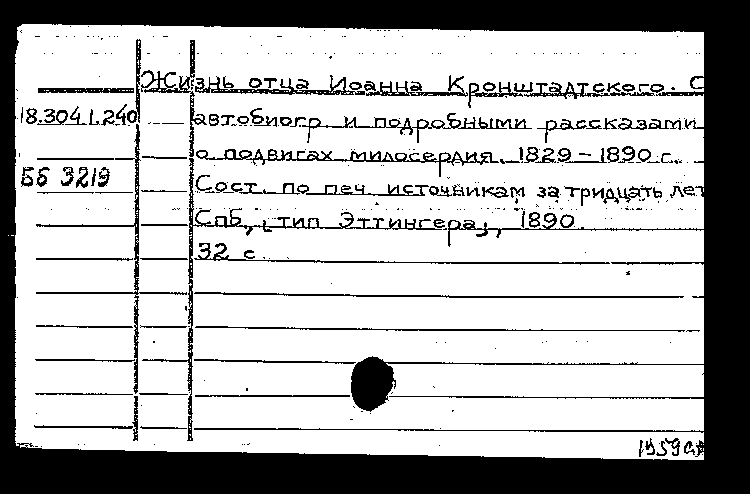 Жизнь отца Иоанна Кронштадтского. С
18.304.1.240
автобиогр. и подробными рассказами
о подвигах милосердия. 1829-1890 г.
ББ 3219
Сост. по печ. источникам за тридцать лет
Спб., [тип. Эттингера], 1890.
32 с.